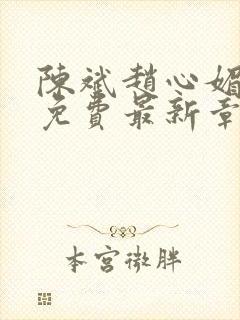 陳斌趙心媚
免費最新章
本宮微胖